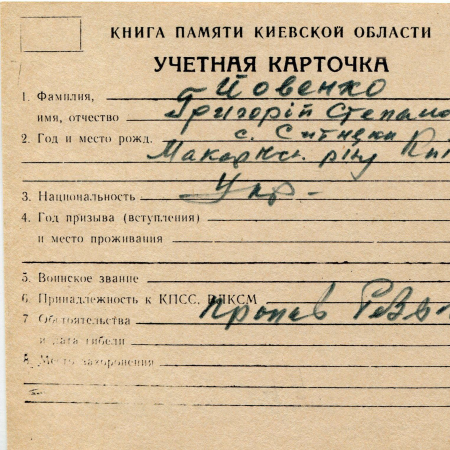 КНИГА ПАМЯТИ КИЕВСКОЙ ОБЛАСТИ
УЧЕТНАЯ КАРТОЧКА
1. Фамилия, Йовенко
имя, отчество Григорій Степано
2. Год и место рожд. с. Ситняки
Макарівс. р-ну Киї
3. Национальность Укр.
4. Год призыва (вступления)
и место проживания
5. Воинское звание
6. Принадлежность к КПСС. ВЛКСМ
7. Обстоятельства Пропав
и дата гибели
8. Место захоронения